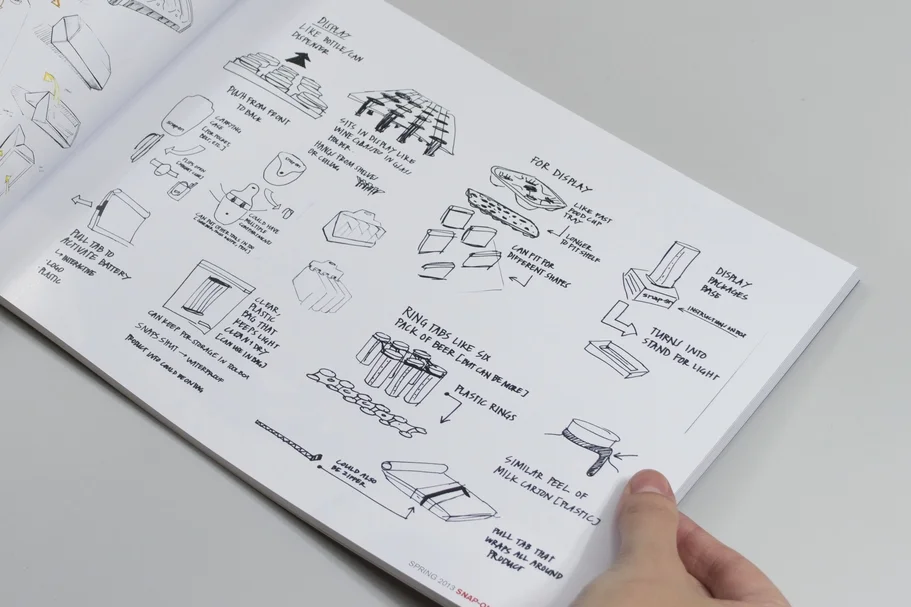 DISPLAY
LIKE BOTTLE/CAN
DISPENSER
PUSH FROM FRONT
TO BACK
SITS IN DISPLAY LIKE
WINE GLASSES IN GLASS
HOLDER
HANG FROM SHELF/
OR CEILING
CARRYING
CASE
FLIP OPEN
COULD HAVE
MULTIPLE
PULL TAB TO
ACTIVATE BATTERY
↳ INTERACTIVE
LOGO
PLASTIC
CLEAR,
PLASTIC
BAG THAT
KEEPS LIGHT
CLEAN & DRY
[CAN USE IN BAG]
CAN KEEP FOR STORAGE IN TOOLBOX
SNAPS SHUT → WATERPROOF
PRODUCT INFO & LOGO
COULD BE ON BAG
FOR DISPLAY
LIKE FAST
FOOD CUP
TRAY
LONGER
TO FIT SHELF
CAN PIT FOR
DIFFERENT SHAPES
DISPLAY
PACKAGES
BASE
snap-on
INSTRUCTION ON BOX
TURNS INTO
STAND FOR LIGHT
RING TABS LIKE SIX
PACK OF BEER [BUT CAN BE MORE]
PLASTIC RINGS
COULD ALSO
BE ZIPPER
SIMILAR PEEL OF
MILK CARTON [PLASTIC]
PULL TAB THAT
WRAPS ALL AROUND
PRODUCT
SPRING 2013 SNAP-O